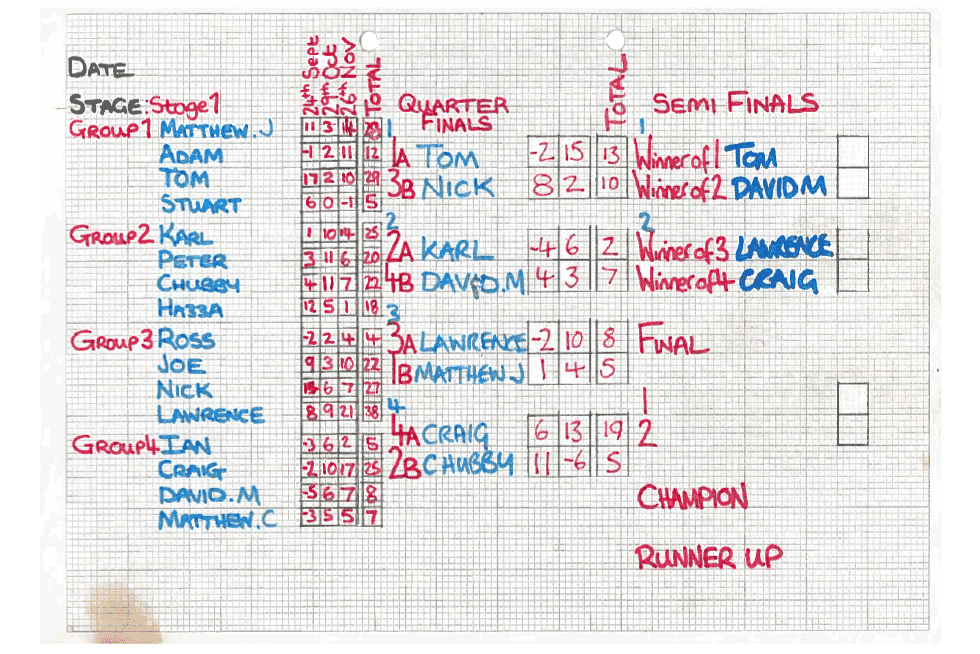 DATE
STAGE: Stage 1
24th Sept
29th Oct
26th Nov
TOTAL
GROUP 1 MATTHEW.J 11 3 14 28
ADAM -1 2 11 12
TOM 17 2 10 29
STUART 6 0 -1 5
GROUP 2 KARL 1 10 14 25
PETER 3 11 6 20
CHUBBY 4 11 7 22
HAZZA 12 5 1 18
GROUP 3 ROSS -2 2 4 4
JOE 9 3 10 22
NICK 6 7 27
LAWRENCE 8 9 21 38
GROUP 4 IAN -3 6 2 5
CRAIG -2 10 17 25
DAVID.M -5 6 7 8
MATTHEW.C -3 5 5 7
QUARTER
FINALS
TOTAL
1
1A TOM -2 15 13
3B NICK 8 2 10
2
2A KARL -4 6 2
4B DAVID.M 4 3 7
3
3A LAWRENCE -2 10 8
1B MATTHEW J 1 4 5
4
4A CRAIG 6 13 19
2B CHUBBY 11 -6 5
SEMI FINALS
1
Winner of 1 TOM
Winner of 2 DAVID M
2
Winner of 3 LAWRENCE
Winner of 4 CRAIG
FINAL
1
2
CHAMPION
RUNNER UP